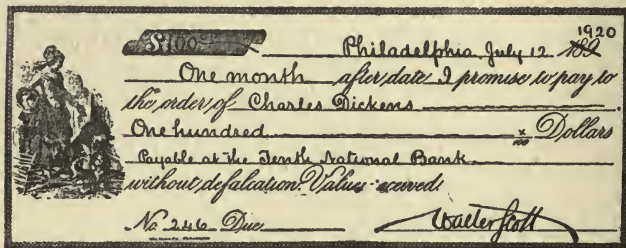 $100
Philadelphia, July 12 1920
One month after date I promise to pay to
the order of Charles Dickens
One hundred x/100 Dollars
Payable at the Tenth National Bank
without defalcation. Value received
No. 246 Due Walter Scott